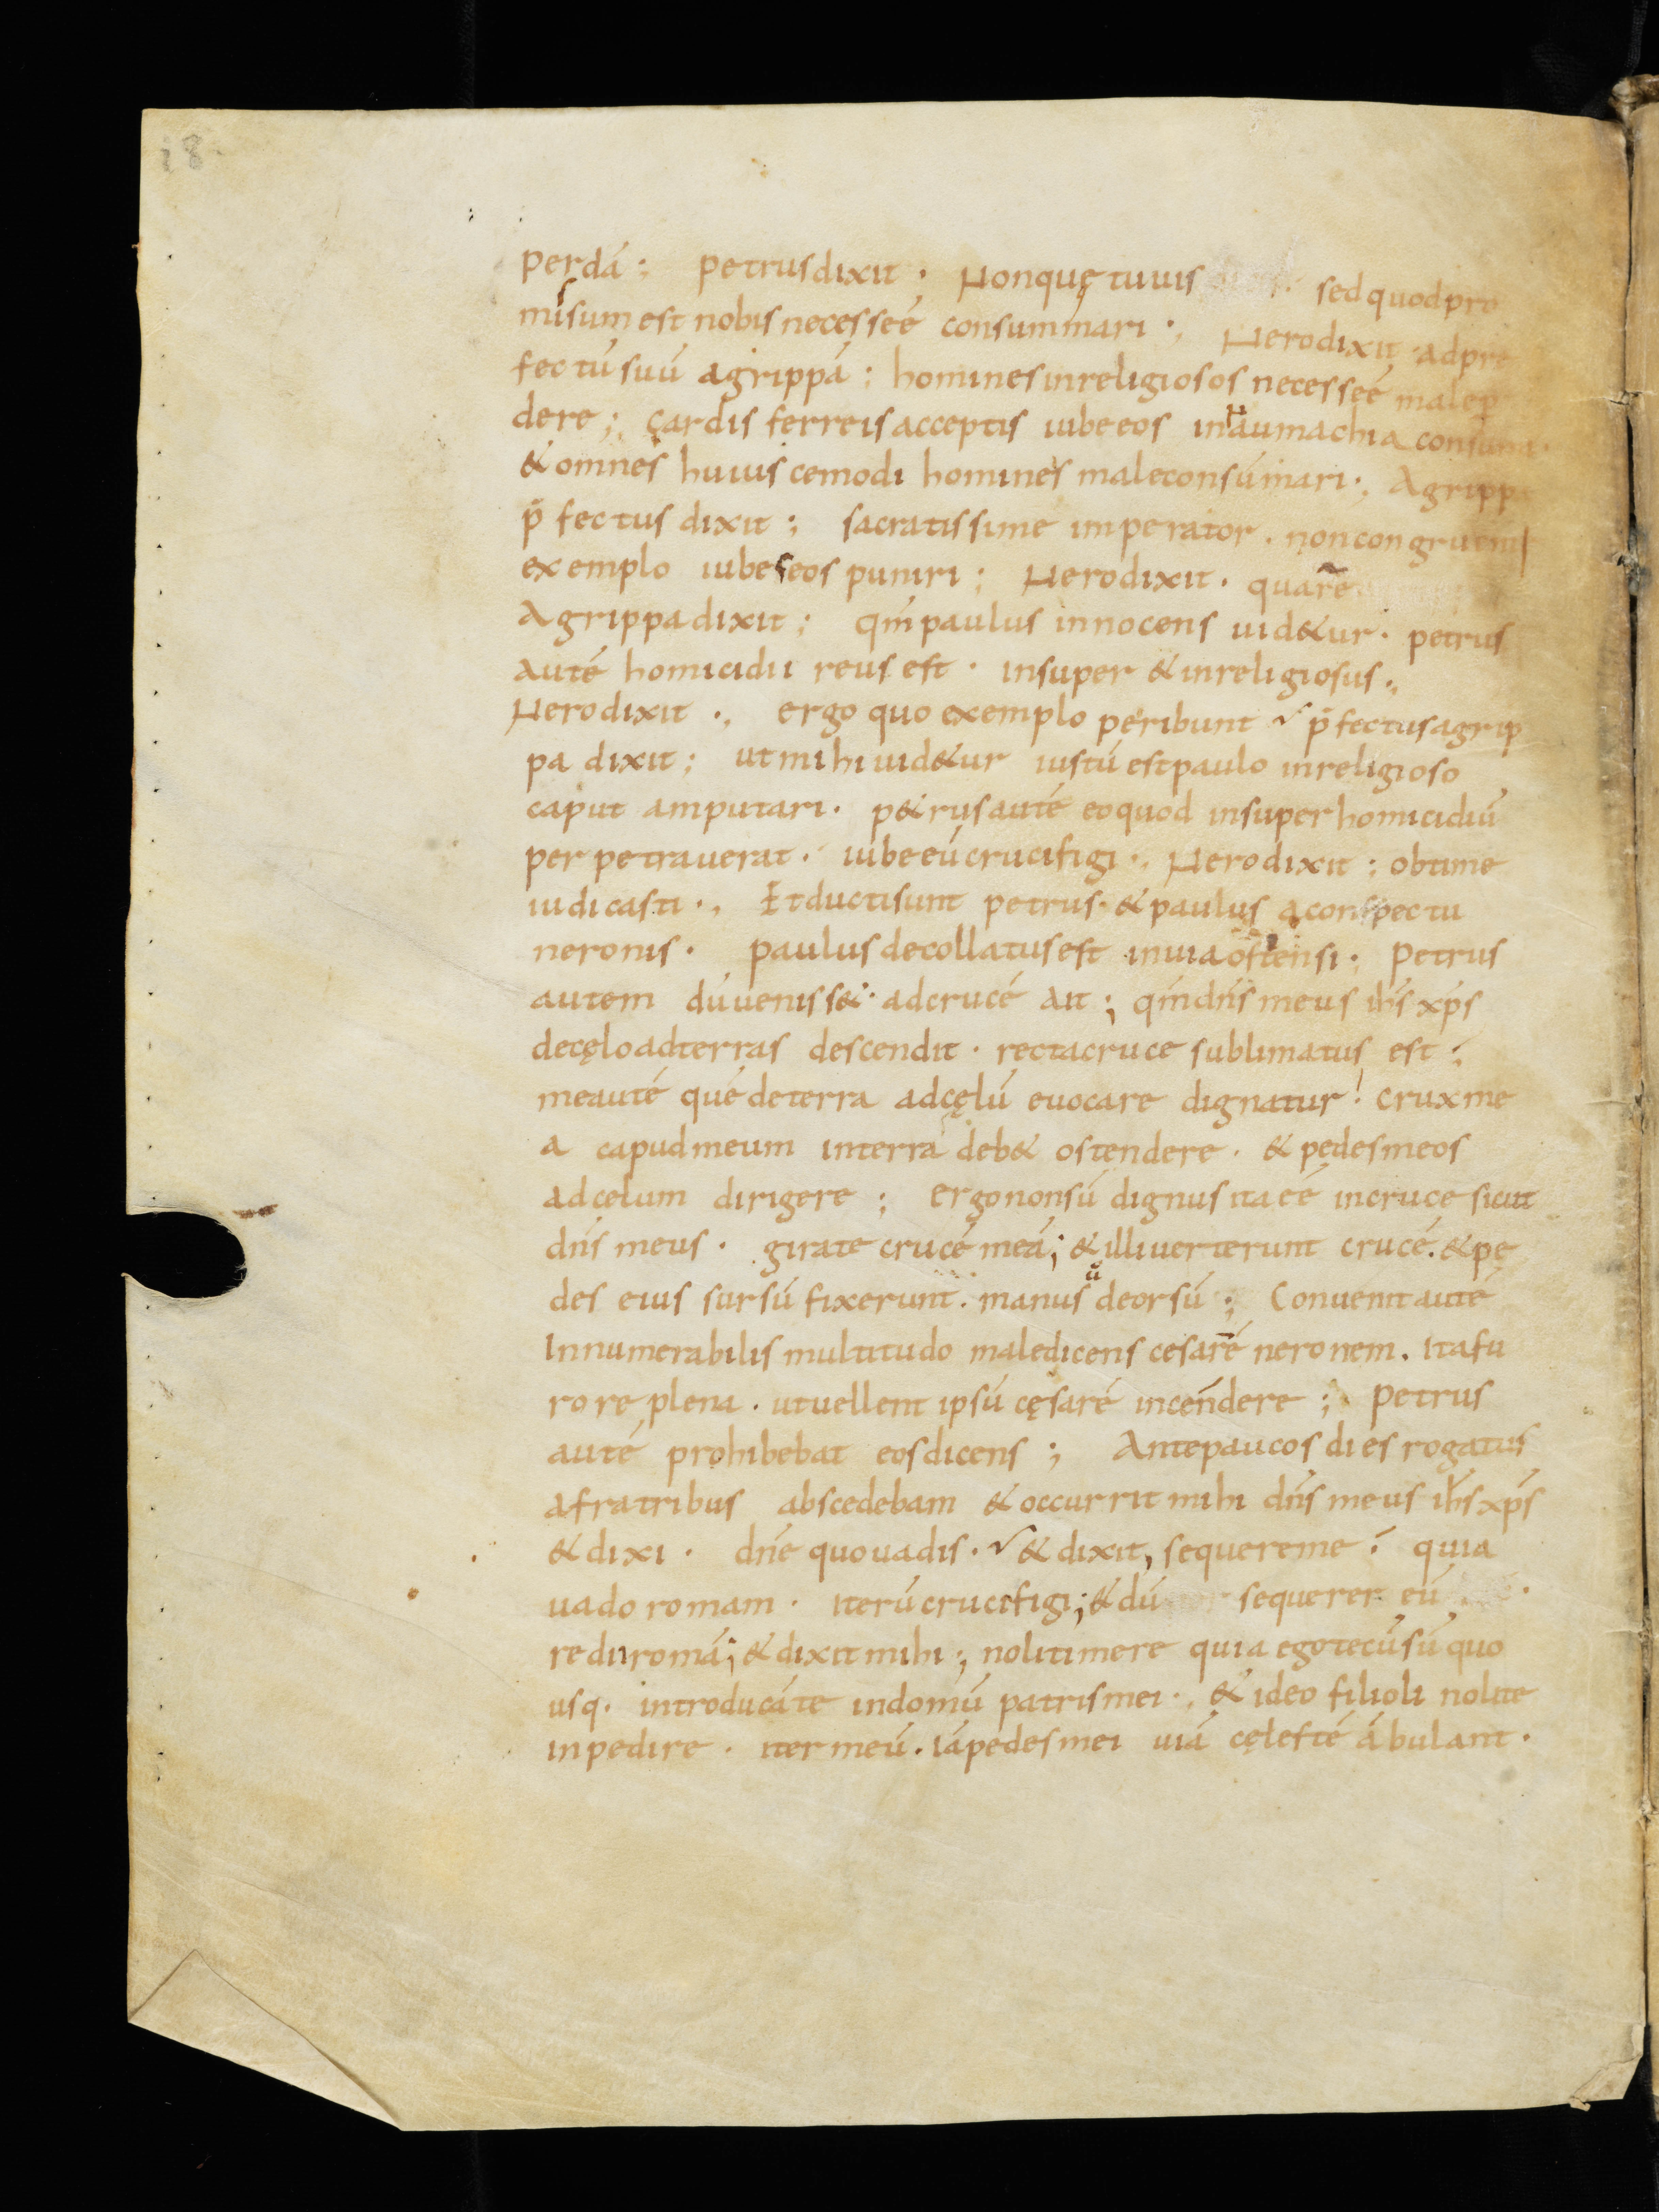 18
perdā; petrus dixit. Non quę tu uis sed quod pro
missum est nobis necesse ēē consummari., Nero dixit ad pre
fectū suū agrippā; homines inreligiosos necesse ēē male
dere; cardis ferreis acceptis iube eos in naumachia
& omnes huiuscemodi homines male consūmari., Agrippa
p̄fectus dixit; sacratissime imperator. non
exemplo iubes eos puniri; Nero dixit. quare
Agrippa dixit; qm̄ paulus innocens uid&ur. petrus
autē homicidii reus est. insuper & inreligiosus.,
Nero dixit., ergo quo exemplo peribunt? p̄fectus agrip
pa dixit; ut mihi uid&ur iustū est paulo inreligioso
caput amputari. p&rus autē eo quod insuper homicidiū
perpetrauerat. iube eū crucifigi., Nero dixit; obtime
iudicasti., Et ducti sunt petrus & paulus a conspectu
neronis. paulus decollatus est in uia ostensi. Petrus
autem dū uenisse&. ad crucē ait; qm̄ dn̄s meus ih̄s xp̄s
de cęlo ad terras descendit. recta cruce sublimatus est;
me autē quē de terra ad cęlū euocare dignatur! crux me
a capud meum in terra deb& ostendere. & pedes meos
ad celum dirigere; ergo non sū dignus ita ēē in cruce sicut
dn̄s meus. girate crucē meā; & illi uerterunt crucē. & pe
des eius sursū fixerunt. manus ū deorsū; Conuenit autē
Innumerabilis multitudo maledicens cesarē neronem. ita fu
rore plena. ut uellent ipsū cęsarē incendere; Petrus
autē prohibebat eos dicens; Ante paucos dies rogatus
a fratribus abscedebam & occurrit mihi dn̄s meus ih̄s xp̄s
& dixi. dn̄e quo uadis.? & dixit, sequere me; quia
uado romam. iterū crucifigi; & dū sequerer eū
redii romā; & dixit mihi; noli timere quia ego tecū sū quo
usq. introducā te in domū patris mei., & ideo filioli nolite
inpedire. iter meū. iā pedes mei uiā cęlestē ābulant.